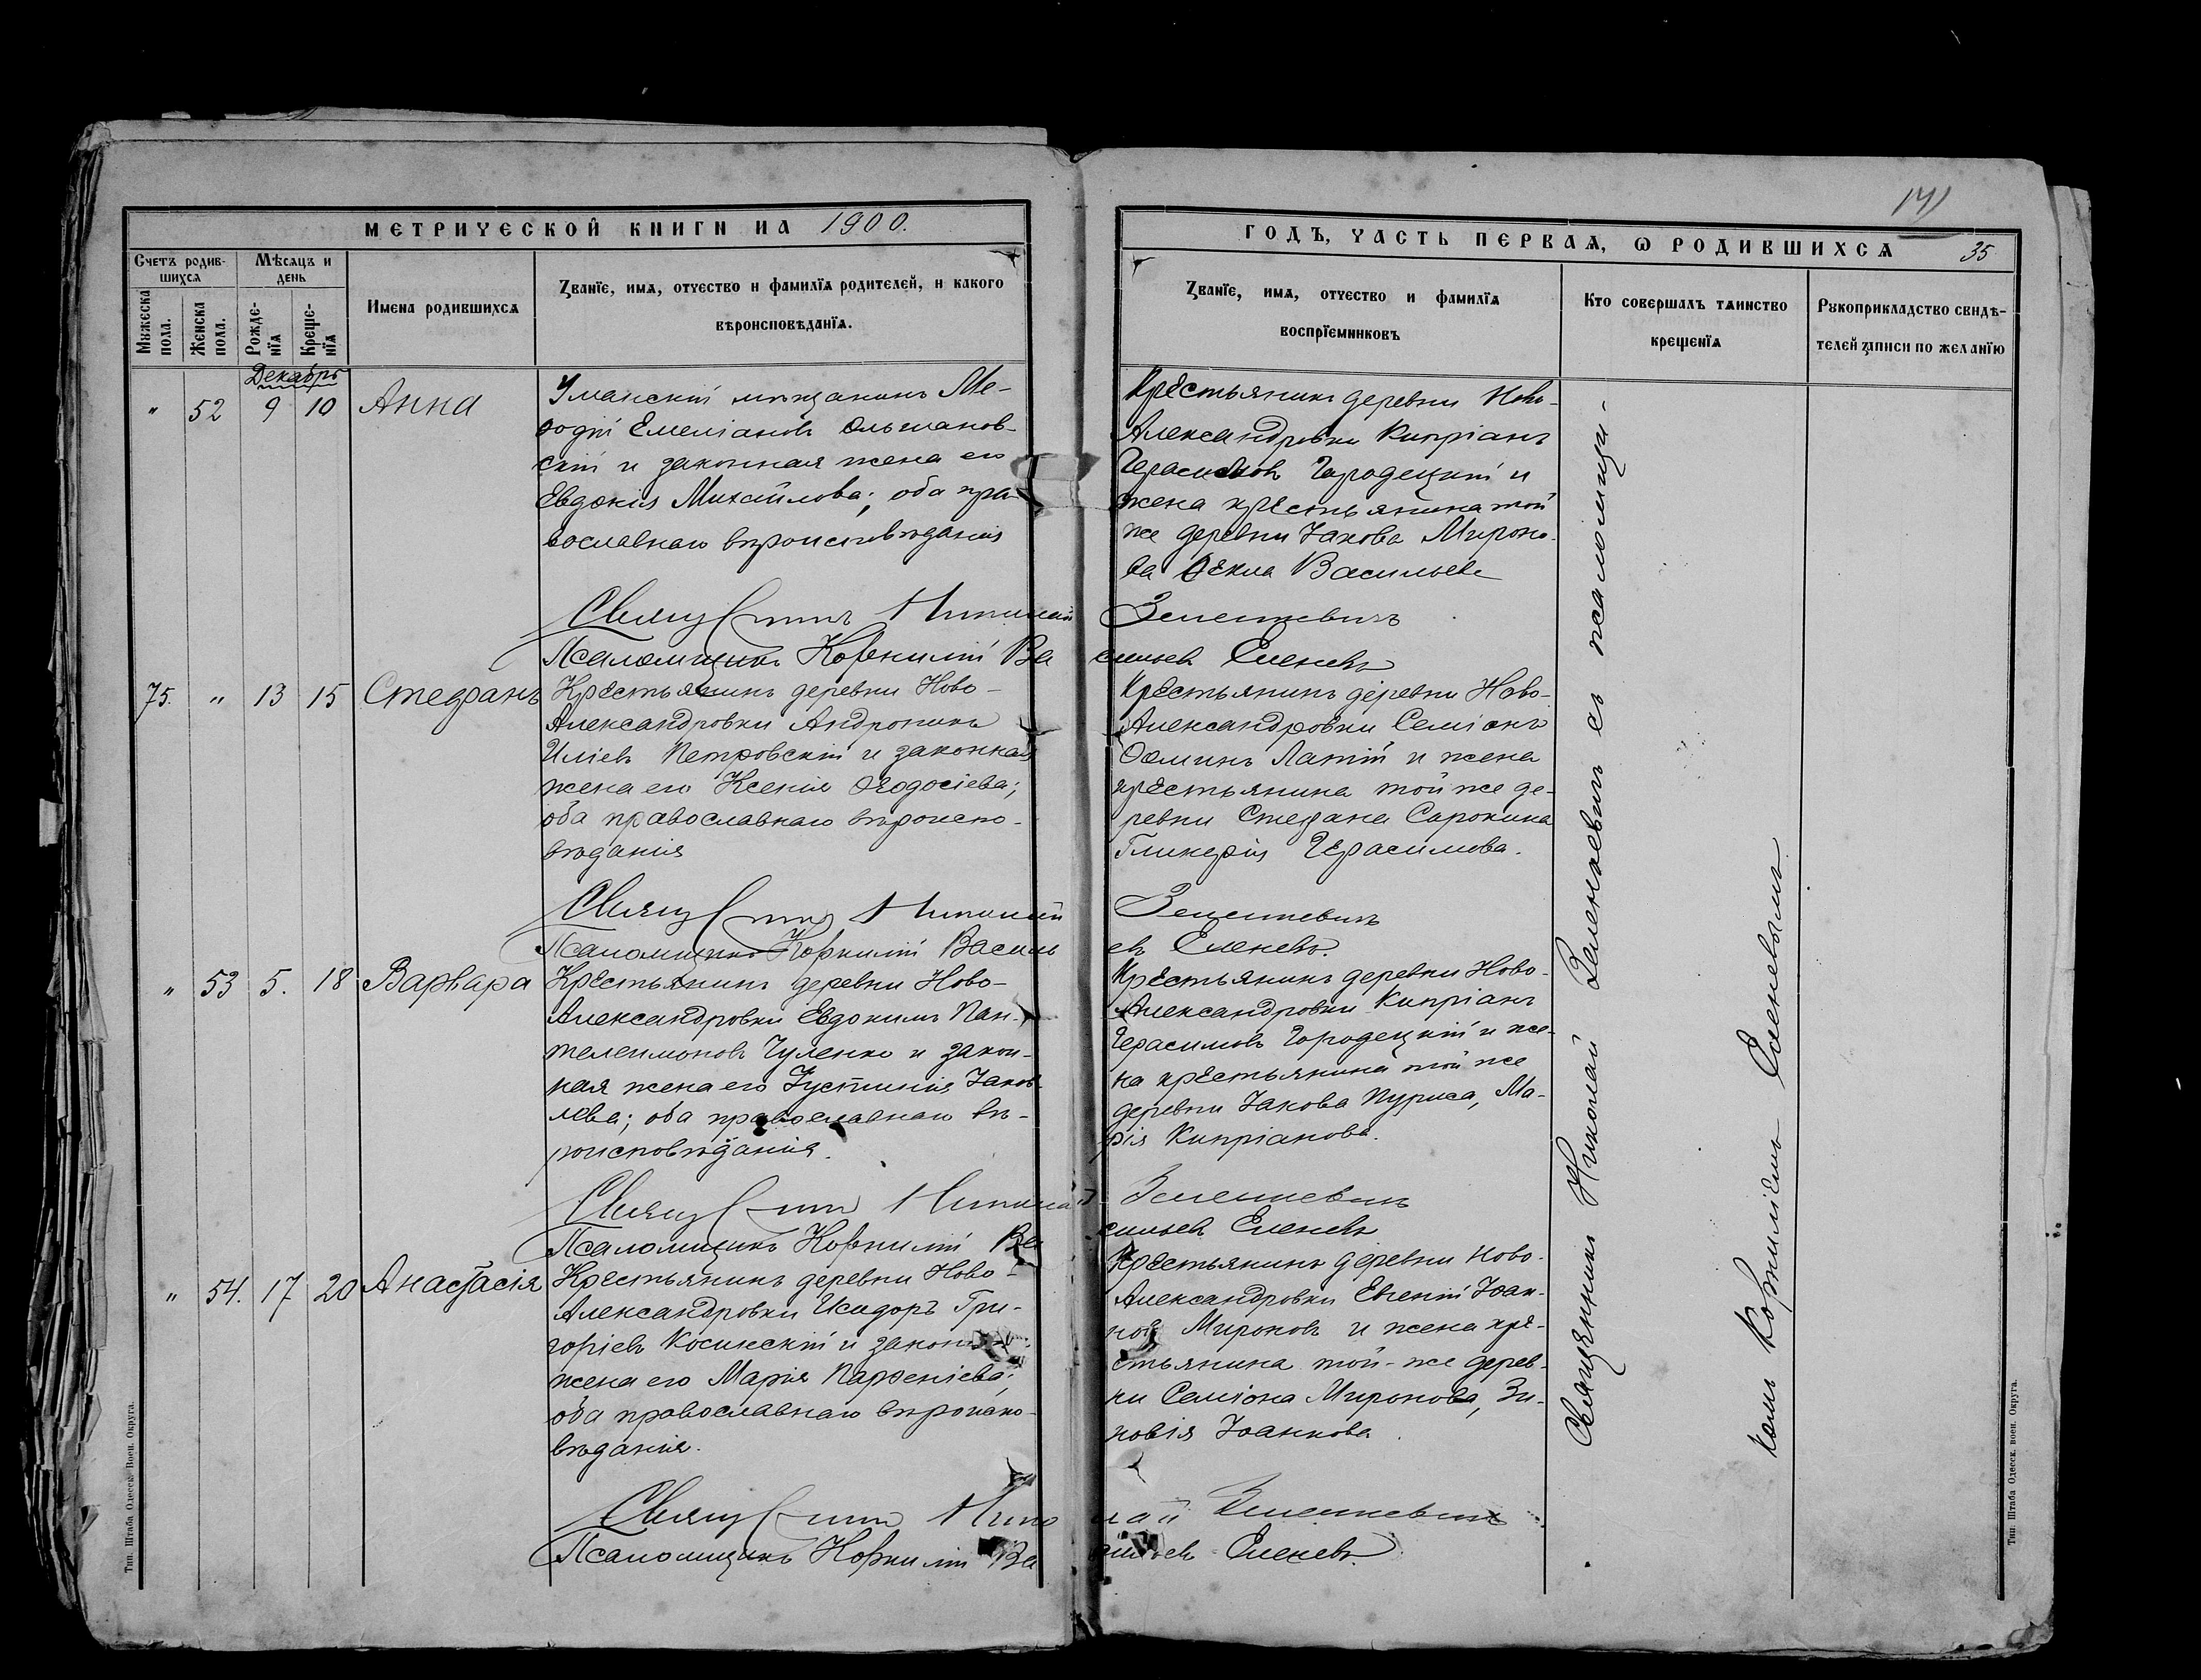 141
МЕТРИЧЕСКОЙ КНИГИ НА 1900.
ГОДЪ, ЧАСТЬ ПЕРВАѦ, Ѡ РОДИВШИХСѦ
35
Счетъ родив-
шихсѧ
Мѣсѧцъ и
день
Мꙋжеска
пола.
Женска
пола.
Рожде-
нїѧ
Креще-
нїѧ
Имена родившихсѧ
Званїе, имѧ, отчество и фамилїѧ родителей, и какого
вѣроисповѣданїѧ.
Званїе, имѧ, отчество и фамилїѧ
воспрїемниковъ
Кто совершалъ таинство
крещенїѧ
Рꙋкоприкладство свидѣ-
телей записи по желанїю
Декабрь
" 52 9 10 Анна
Уманскій мѣщанинъ Ме-
ѳодій Емеліановъ Ольшанов-
скій и законная жена его
Евдокія Михайлова; оба пра-
вославнаго вѣроисповѣданія
Крестьянинъ деревни Ново-
Александровки Кипріанъ
Герасимовъ Городецкій и
жена крестьянина той
же деревни Іакова Мироно-
ва Ѳекла Васильева
Священникъ Николай Зеленкевичъ
Псаломщикъ Корнилій Васильевъ Еленевъ
75. " 13 15 Стефанъ
Крестьянинъ деревни Ново-
Александровки Андроникъ
Иліевъ Петровскій и законная
жена его Ксенія Ѳеодосіева;
оба православнаго вѣроиспо-
вѣданія
Крестьянинъ деревни Ново-
Александровки Семіонъ
Ѳоминъ Латій и жена
крестьянина той же де-
ревни Стефана Сорокина
Гликерія Герасимова.
Священникъ Николай Зеленкевичъ
Псаломщикъ Корнилій Васильевъ Еленевъ.
" 53 5. 18 Варвара
Крестьянинъ деревни Ново-
Александровки Евдокимъ Пан-
телеимоновъ Чуленко и закон-
ная жена его Іустинія Іаков-
лева; оба православнаго вѣ-
роисповѣданія.
Крестьянинъ деревни Ново-
Александровки Кипріанъ
Герасимовъ Городецкій и же-
на крестьянина той же
деревни Іакова Пуриса, Ма-
рія Кипріанова.
Священникъ Николай Зеленкевичъ
Псаломщикъ Корнилій Васильевъ Еленевъ
" 54. 17 20 Анастасія
Крестьянинъ деревни Ново-
Александровки Исидоръ Гри-
горіевъ Косинскій и законная
жена его Марія Парѳеніева;
оба православнаго вѣроиспо-
вѣданія.
Крестьянинъ деревни Ново-
Александровки Евгеній Іоан-
новъ Мироновъ и жена кре-
стьянина той-же дерев-
ни Семіона Миронова, Зи-
новія Іоаннова.
Священникъ Николай Зеленкевичъ
Псаломщикъ Корнилій Васильевъ Еленевъ.
Священникъ Николай Зеленкевичъ съ псаломщи-
комъ Корниліемъ Еленевымъ
Тип. Штаба Одесск. Воен. Округа.
Тип. Штаба Одесск. воен. Округа.